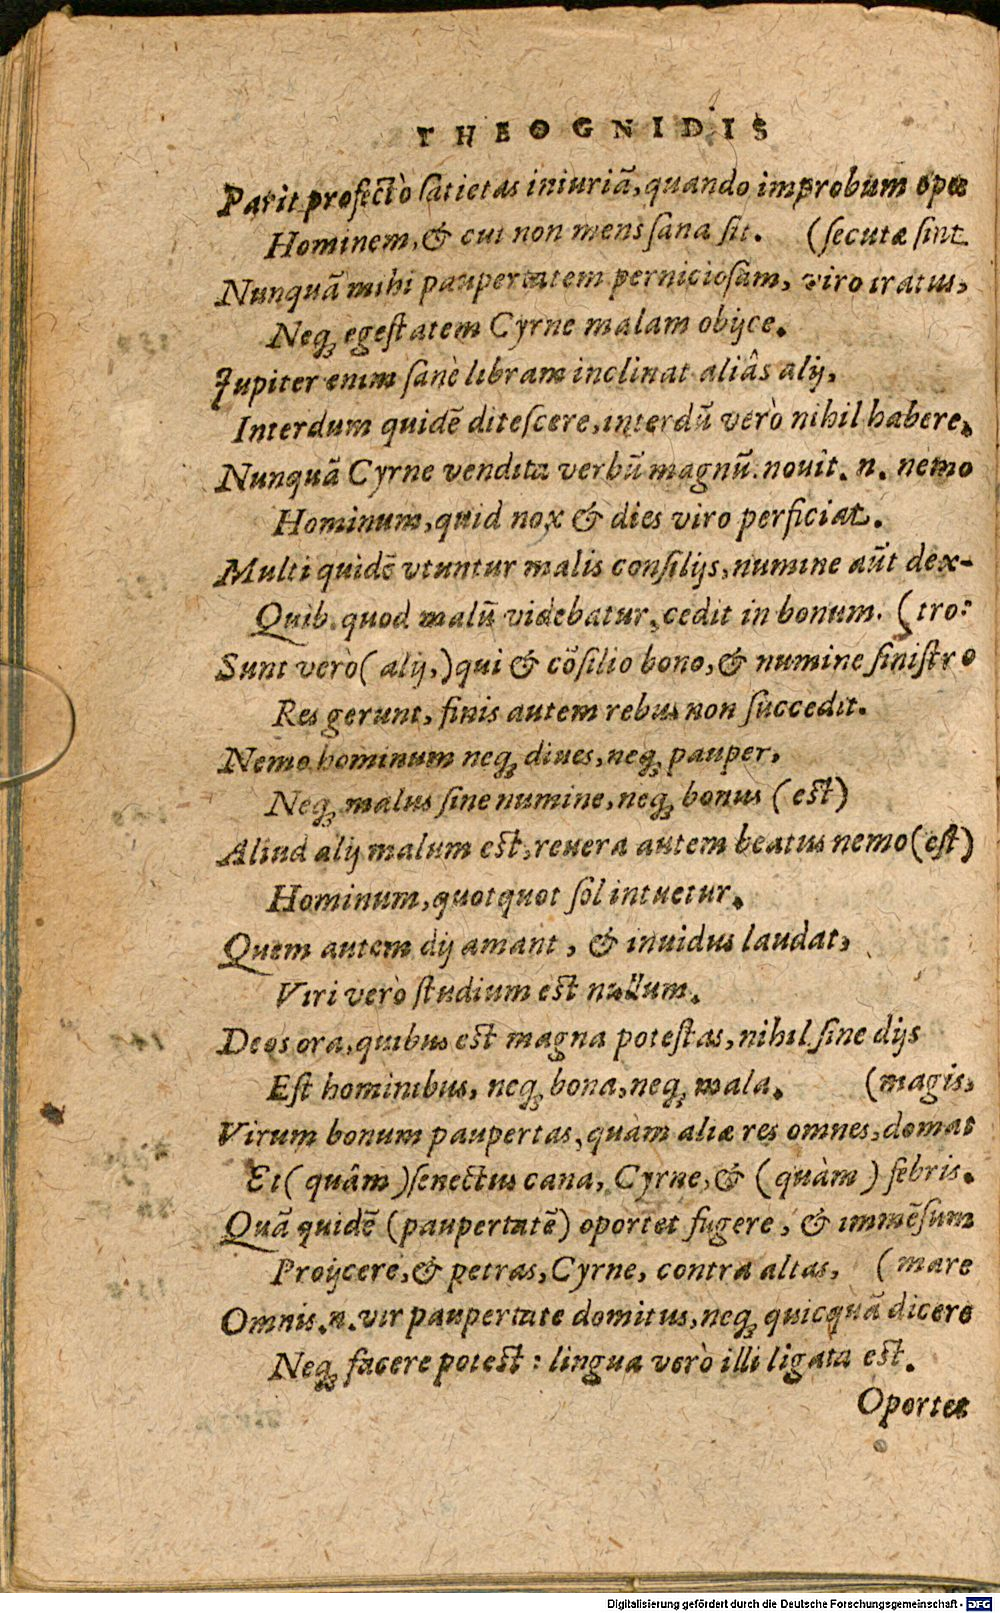 THEOGNIDIS
Parit profectò ſatietas iniuriã, quando improbum opes
Hominem, & cui non mens ſana ſit. (ſecutæ ſint.
Nunquã mihi paupertatem pernicioſam, viro iratus,
Neq; egeſtatem Cyrne malam obijce.
Jupiter enim ſanè libram inclinat aliâs alij,
Interdum quidẽ diteſcere, interdũ verò nihil habere.
Nunquã Cyrne vendita verbũ magnũ. nouit. n. nemo
Hominum, quid nox & dies viro perficiat.
Multi quidẽ vtuntur malis conſilijs, numine aũt dex-
Quib. quod malũ videbatur, cedit in bonum. (tro:
Sunt verò (alij,) qui & cõſilio bono, & numine ſiniſtro
Res gerunt, finis autem rebus non ſuccedit.
Nemo hominum neq; diues, neq; pauper,
Neq; malus ſine numine, neq; bonus (eſt)
Aliud alij malum eſt, reuera autem beatus nemo (eſt)
Hominum, quotquot ſol intuetur.
Quem autem dij amant, & inuidus laudat,
Viri verò ſtudium eſt nullum.
Deos ora, quibus eſt magna poteſtas, nihil ſine dijs
Eſt hominibus, neq; bona, neq; mala. (magis,
Virum bonum paupertas, quàm aliæ res omnes, domat
Et (quâm) ſenectus cana, Cyrne, & (quàm) febris.
Quã quidẽ (paupertatẽ) oportet fugere, & immẽſum
Proijcere, & petras, Cyrne, contra altas, (mare
Omnis. n. vir paupertate domitus, neq; quicquã dicere
Neq; facere poteſt: lingua verò illi ligata eſt.
Oportet
Digitalisierung gefördert durch die Deutsche Forschungsgemeinschaft - DFG